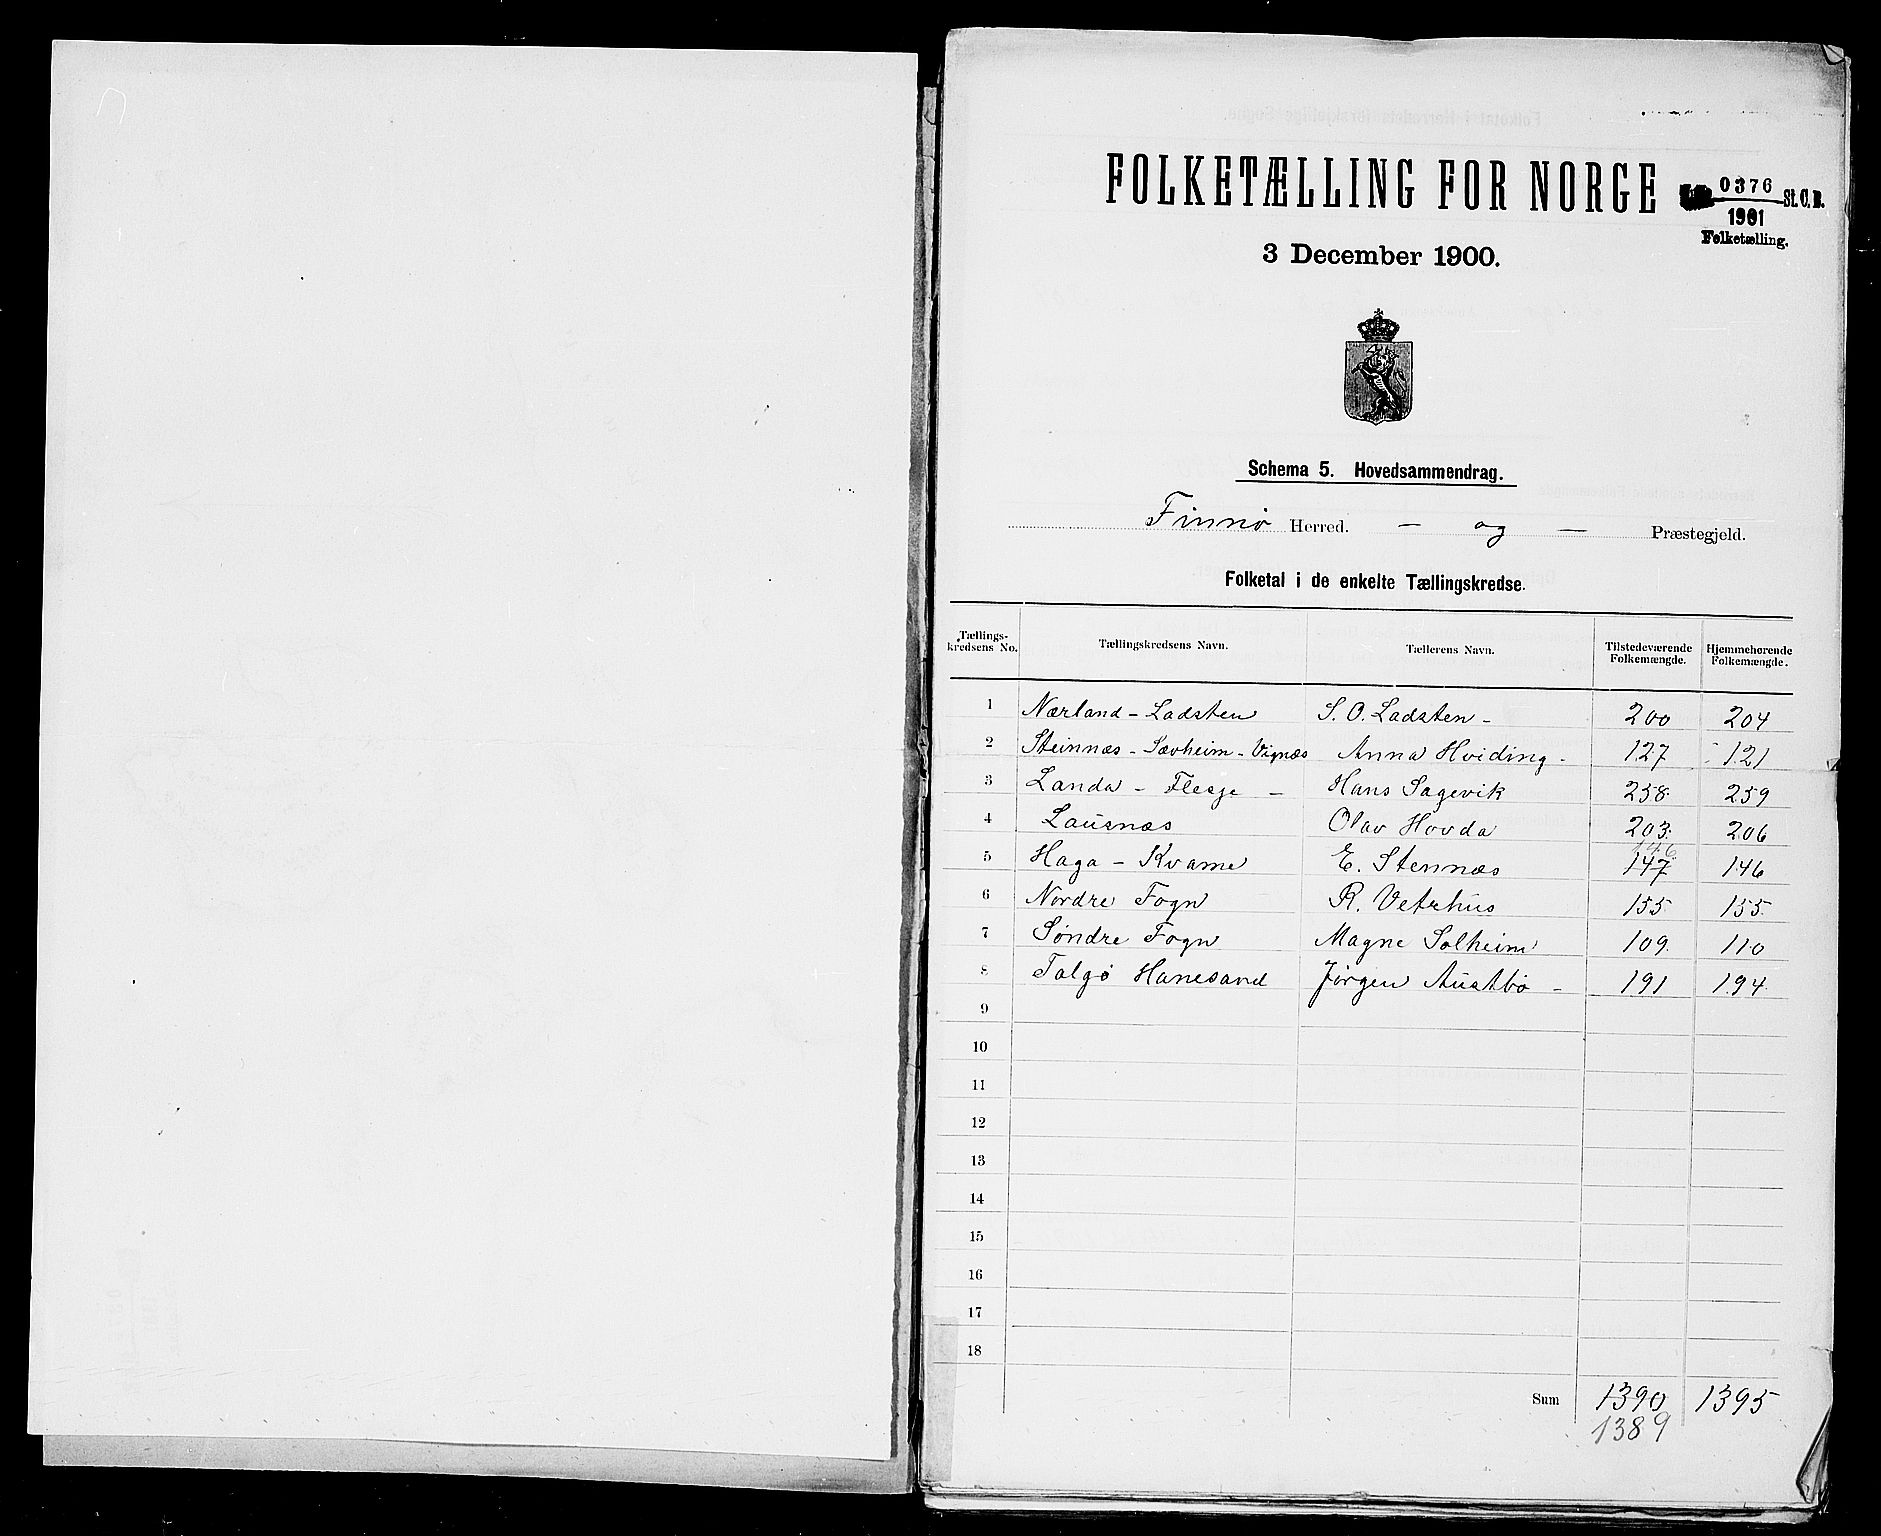 FOLKETÆLLING FOR NORGE
0376 St. C. B.
1901
Folketælling.
3 December 1900.
Schema 5. Hovedsammendrag.
Finnø Herred. — og — Præstegjeld.
Folketal i de enkelte Tællingskredse.
Tællings-kredsens No. Tællingskredsens Navn. Tællerens Navn. Tilstedeværende Folkemængde. Hjemmehørende Folkemængde.
1 Nærland - Ladsten S. O. Ladsten - 200 204
2 Steinnæs - Sævheim - Vignæs Anna Hviding - 127 121
3 Landa - Flesje - Hans Sagevik 258 259
4 Lausnæs Olav Hovda 203 206
146
5 Haga - Kvame E. Stennæs 147 146
6 Nordre Fogn R. Vetrhus 155 155
7 Søndre Fogn Magne Solheim 109 110
8 Talgø Hanesand Jørgen Austbø - 191 194
9
10
11
12
13
14
15
16
17
18
Sum 1390 1395
1389